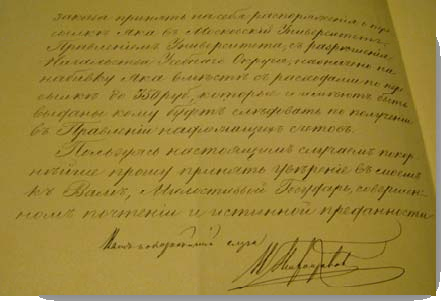 закона принять на себя распоряжения о пе
сылкѣ Яка въ Московскій Университетъ
Правленіемъ Университета, съ разрѣшенія
Начальства Учебнаго Округа, назначено на
набивку Яка вмѣстѣ съ расходами по пе
сылкѣ до 350 руб, которые и имѣютъ быть
выданы кому будетъ слѣдовать по полученіи
въ Правленіи надлежащихъ счетовъ.
Пользуясь настоящимъ случаемъ покор
нѣйше прошу принять увѣреніе въ моемъ
къ Вамъ, Милостивый Государь, совершен
номъ почтеніи и истинной преданности
слуга